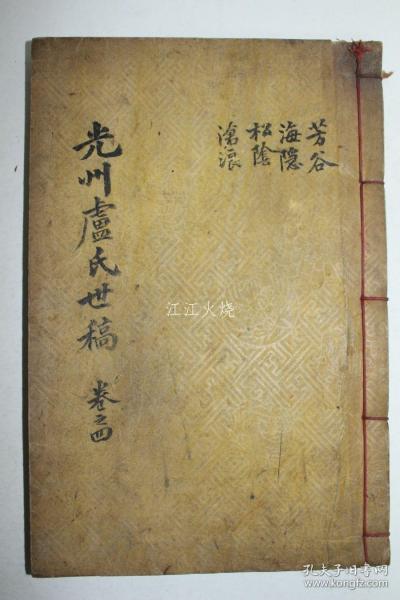 芳谷
海隱
松陰
滄浪
光州盧氏世稿
卷之四
江江火烧
孔夫子旧书网
www.kongfz.com